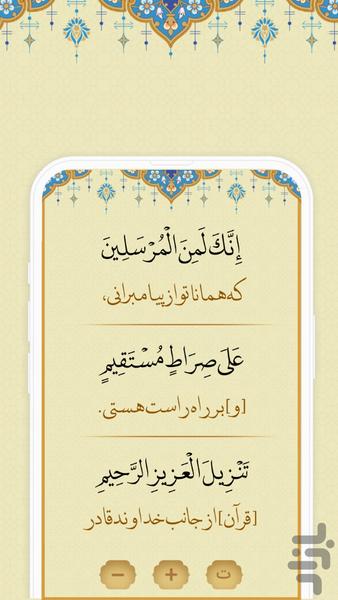 إِنَّكَ لَمِنَ الْمُرْسَلِينَ
که همانا تو از پیامبرانی،
عَلَىٰ صِرَاطٍ مُسْتَقِيمٍ
[و] بر راه راست هستی.
تَنْزِيلَ الْعَزِيزِ الرَّحِيمِ
[قرآن] از جانب خداوند قادر
− + ت
بازار